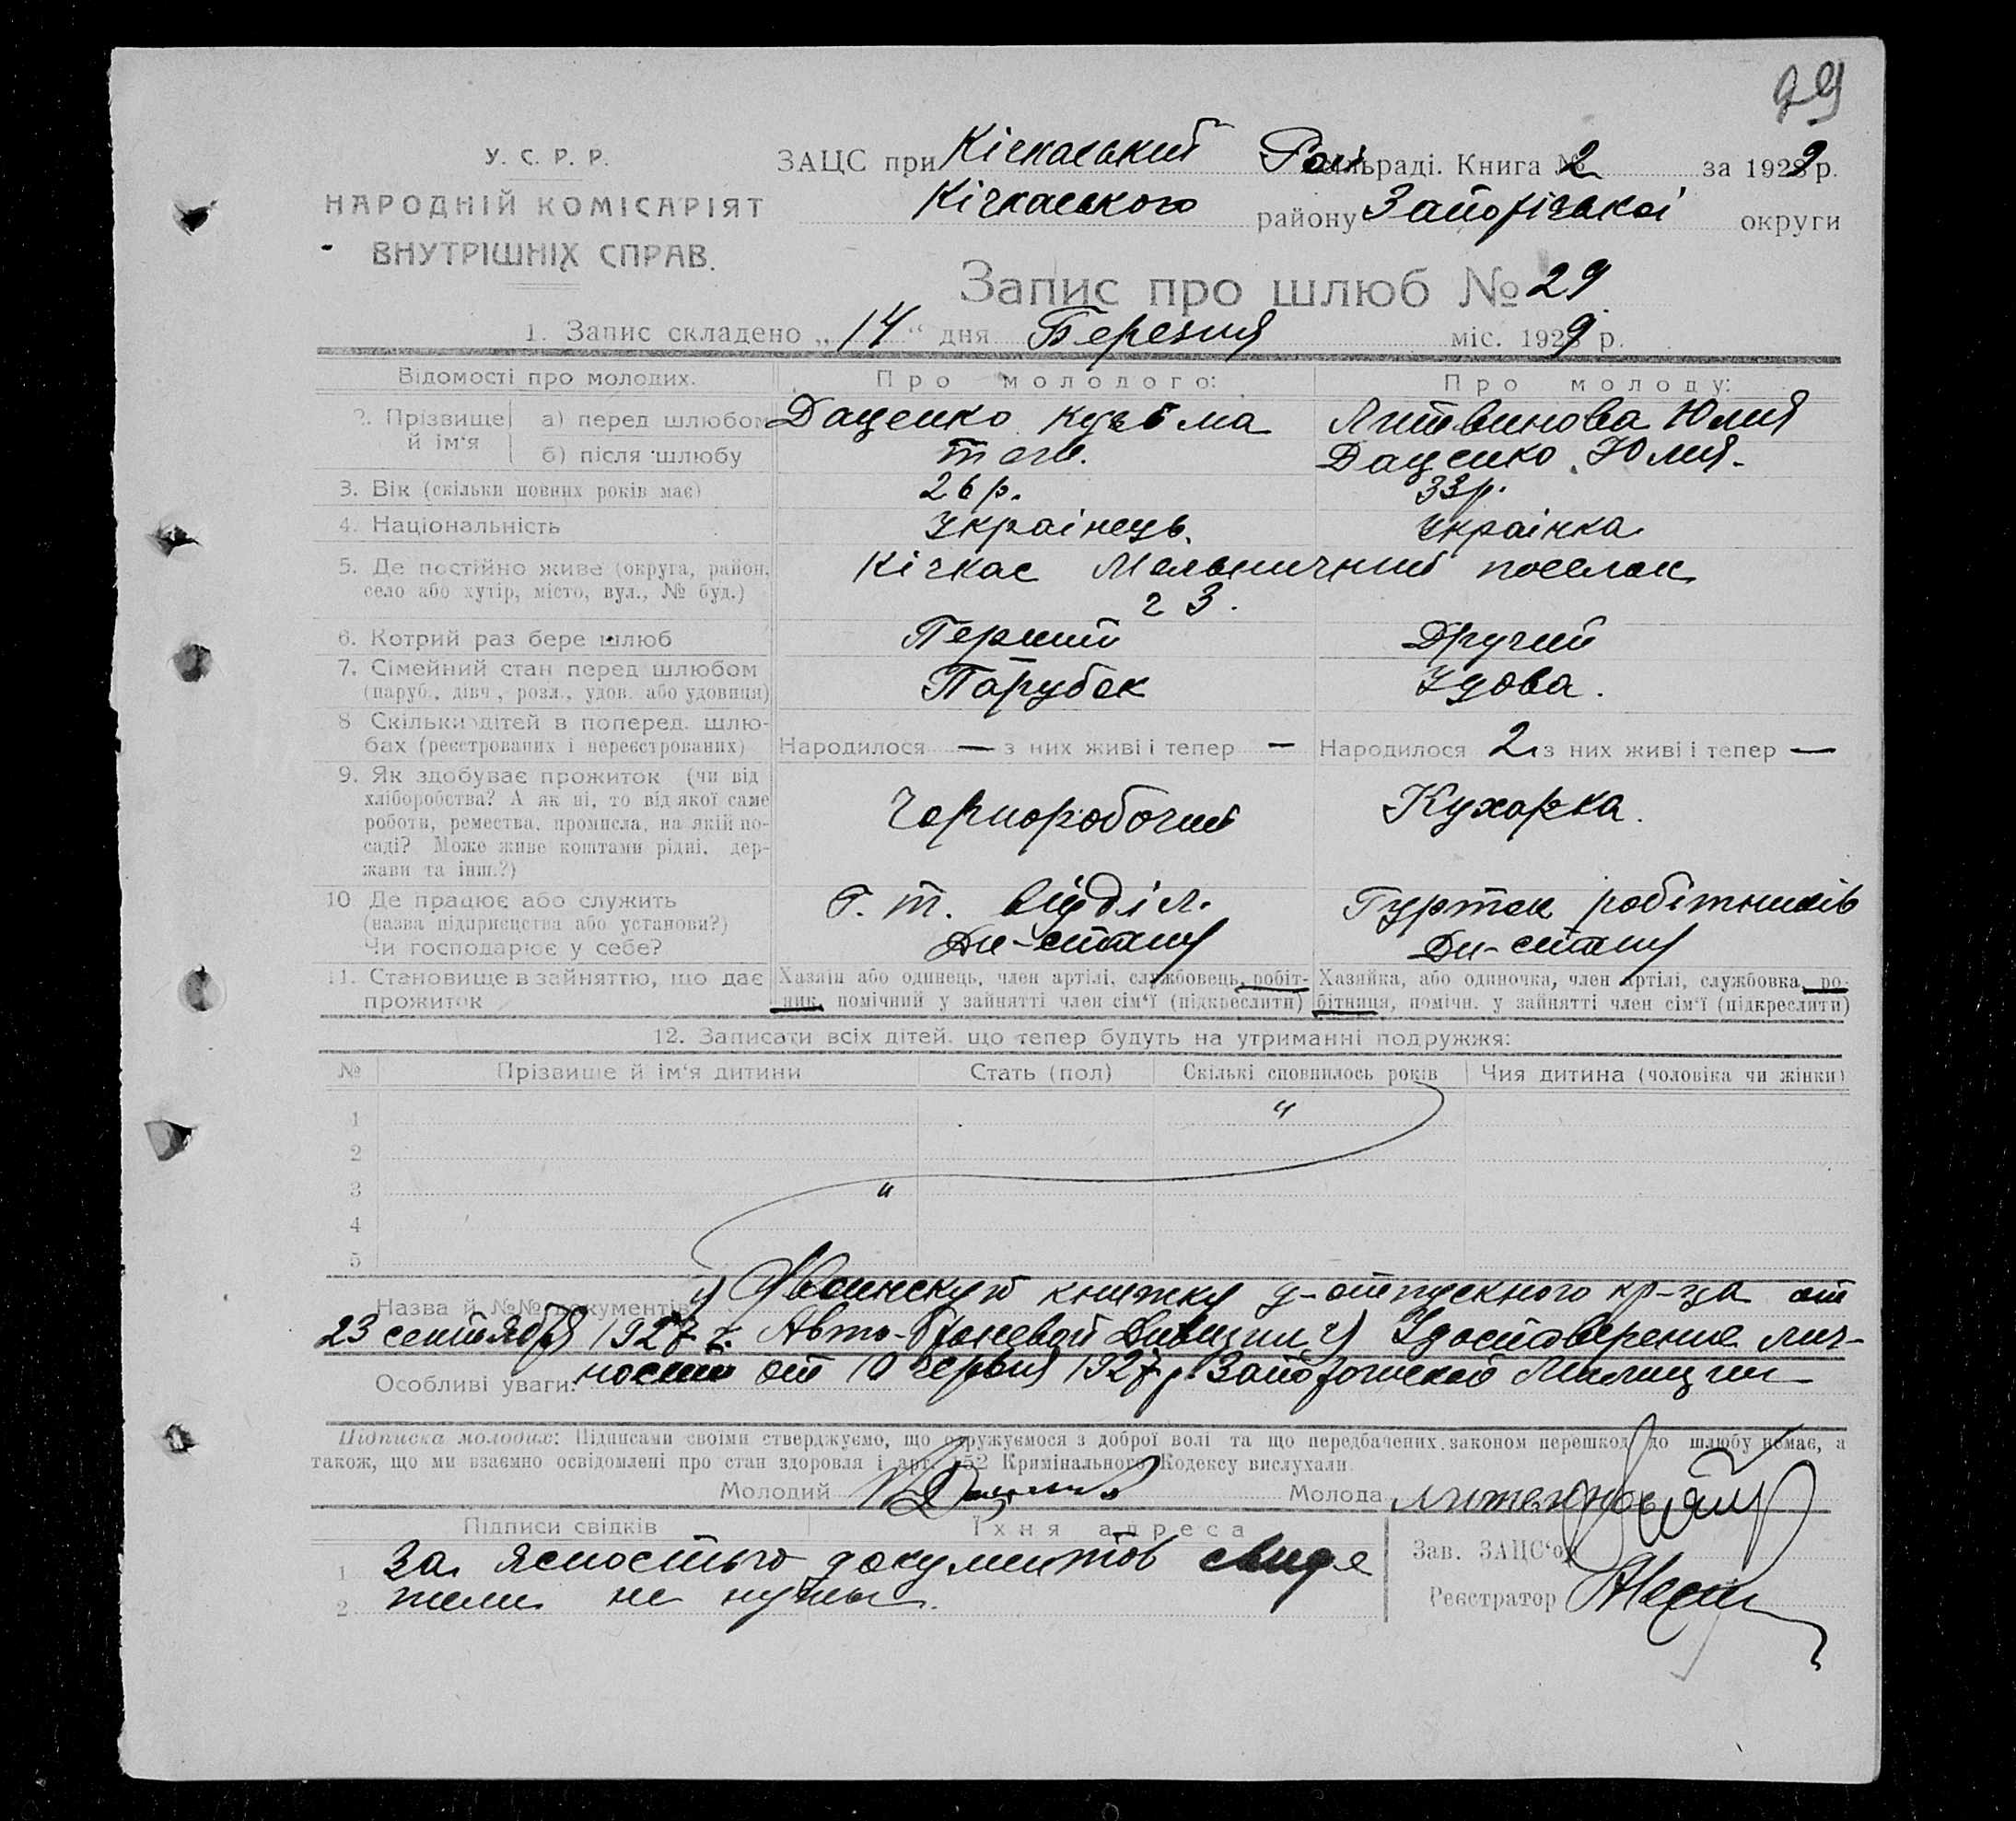 99
У. С. Р. Р.
НАРОДНІЙ КОМІСАРІЯТ
ВНУТРІШНІХ СПРАВ.
ЗАЦС при Кічкаський Рай сільраді. Книга № 2 за 1929 р.
Кічкаського району Запорізької округи
Запис про шлюб № 29
1. Запис складено „14“ дня Березня міс. 1929 р.
Відомості про молодих. Про молодого: Про молоду:
2. Прізвище й ім‘я а) перед шлюбом Даценко Кузьма Литвинова Юлия
б) після шлюбу тоге. Даценко Юлия.
3. Вік (скільки повних років має) 26 р. 33 р.
4. Національність Українець. Українка
5. Де постійно живе (округа, район, село або хутір, місто, вул., № буд.) Кічкас Мельничний поселок
23.
6. Котрий раз бере шлюб Перший Другий
7. Сімейний стан перед шлюбом (паруб., дівч., розл., удов. або удовиця) Парубок Удова.
8 Скільки дітей в поперед. шлюбах (реєстрованих і нереєстрованих) Народилося — з них живі і тепер — Народилося 2 з них живі і тепер —
9. Як здобуває прожиток (чи від
хліборобства? А як ні, то від якої саме
роботи, ремества, промисла, на якій посаді? Може живе коштами рідні, держави та інш.?) Чорноробочий Кухарка.
10 Де працює або служить Г. т. відділ. Гурток робітників
(назва підприємства або установи?)
Чи господарює у себе? Дн-стану Дн-стану
11. Становище в зайняттю, що дає прожиток Хазяїн або одинець, член артілі, службовець, робітник, помічний у зайнятті член сім‘ї (підкреслити) Хазяйка, або одиночка, член артілі, службовка, робітниця, помічн. у зайнятті член сім‘ї (підкреслити)
12. Записати всіх дітей, що тепер будуть на утриманні подружжя:
№ Прізвище й ім‘я дитини Стать (пол) Скількі сповнилось років Чия дитина (чоловіка чи жінки)
1 "
2
3 "
4
5
Назва й №№ документів: 1) Воинскую книжку д-отпускного кр-ца от
23 сентября 1927 г. Авто-Броневой Дивизии 2) Удостоверение лич-
Особливі уваги: ности от 10 червня 1927 р. Запорожской Милиции
Підписка молодих: Підписами своїми стверджуємо, що одружуємося з доброї волі та що передбачених законом перешкод до шлюбу немає, а
також, що ми взаємно освідомлені про стан здоровля і арт. 152 Кримінального Кодексу вислухали.
Молодий Молода Литвинова
Підписи свідків Їхня адреса
1 За ясностью документов свиде
2 тели не нужны.
Зав. ЗАЦС‘ом
Реєстратор